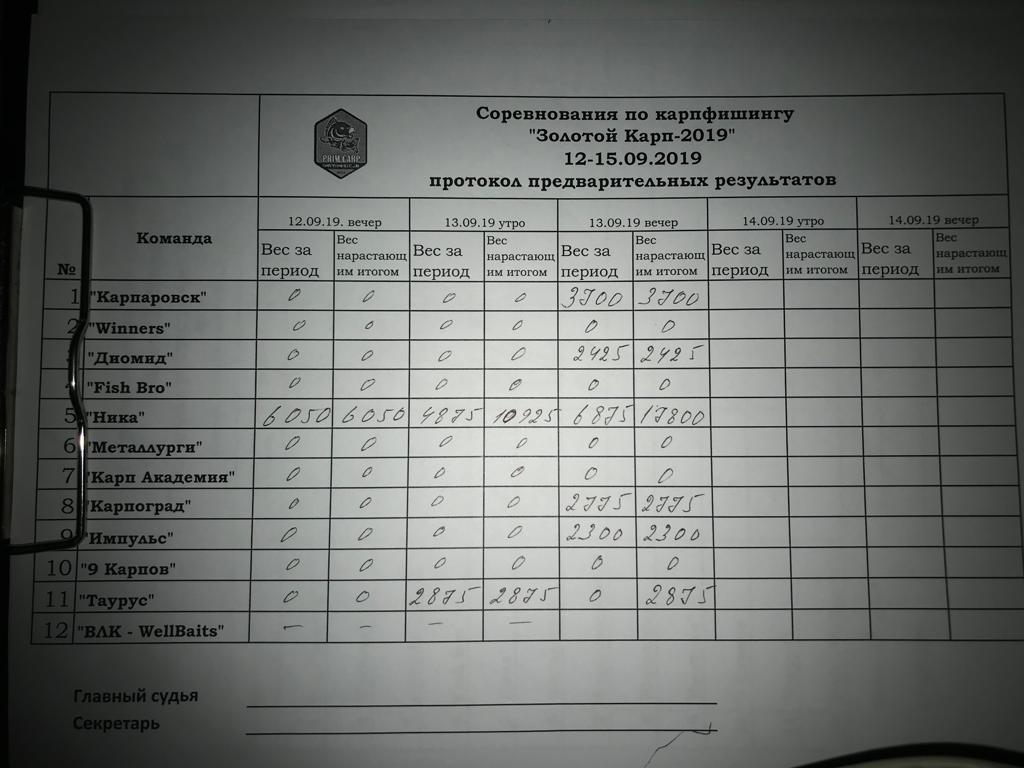 Соревнования по карпфишингу
"Золотой Карп-2019"
12-15.09.2019
протокол предварительных результатов
PRIM.CARP
№ Команда 12.09.19. вечер 13.09.19 утро 13.09.19 вечер 14.09.19 утро 14.09.19 вечер
Вес за период Вес нарастающим итогом Вес за период Вес нарастающим итогом Вес за период Вес нарастающим итогом Вес за период Вес нарастающим итогом Вес за период Вес нарастающим итогом
1 "Карпаровск" 0 0 0 0 3700 3700
2 "Winners" 0 0 0 0 0 0
3 "Диомид" 0 0 0 0 2425 2425
4 "Fish Bro" 0 0 0 0 0 0
5 "Ника" 6050 6050 4875 10925 6875 17800
6 "Металлурги" 0 0 0 0 0 0
7 "Карп Академия" 0 0 0 0 0 0
8 "Карпоград" 0 0 0 0 2775 2775
9 "Импульс" 0 0 0 0 2300 2300
10 "9 Карпов" 0 0 0 0 0 0
11 "Таурус" 0 0 2875 2875 0 2875
12 "ВЛК - WellBaits" — — — —
Главный судья
Секретарь